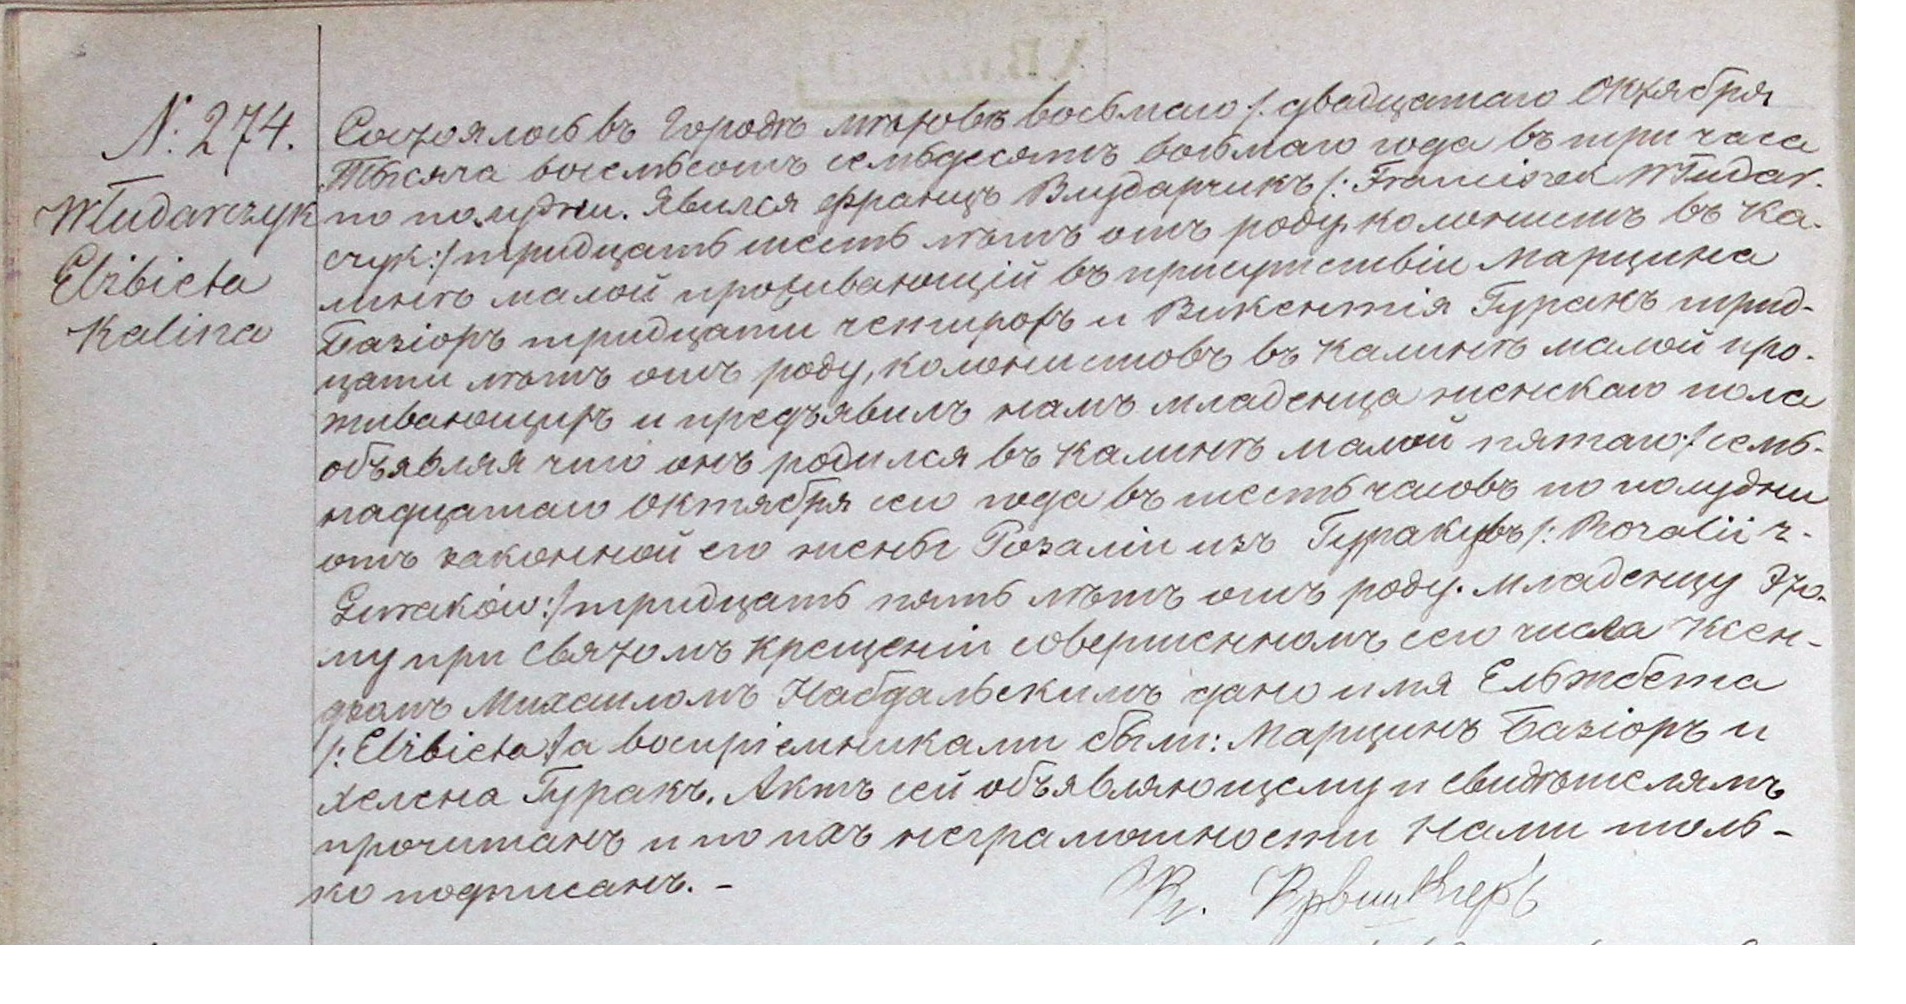 N. 274.
Włudarczyk
Elżbieta
Kalina
Состоялось въ Городѣ Мѣховѣ восьмаго /. двадцатаго Октября
Тысяча восемьсотъ семьдесятъ восьмаго года въ три часа
по полудни. Явился Францъ Влударчикъ /: Franciszek Włudar-
czyk :/ тридцать шесть лѣтъ отъ роду, колонистъ въ Ка-
линѣ малой проживающій въ присутствіи Марцина
Базіоръ тридцати четырехъ и Викентія Гуракъ трид-
цати лѣтъ отъ роду, колонистовъ въ Калинѣ малой про-
живающихъ и предъявилъ намъ младенца женскаго пола
объявляя что онъ родился въ Калинѣ малой пятаго :/ семь-
надцатаго Октября сего года въ шесть часовъ по полудни
отъ законной его жены Розаліи изъ Гураковъ /: Rozalii z-
Guraków :/ тридцать пять лѣтъ отъ роду. Младенцу Это-
му при Святомъ Крещеніи совершенномъ сего числа Ксен-
дзомъ Михаиломъ Набдальскимъ дано имя Ельжбета
/: Elżbieta :/ а воспріемниками были: Марцинъ Базіоръ и
Хелена Гуракъ. Актъ сей объявляющему и свидѣтелямъ
прочитанъ и по ихъ неграмотности Нами толь-
ко подписанъ. -
Кс.